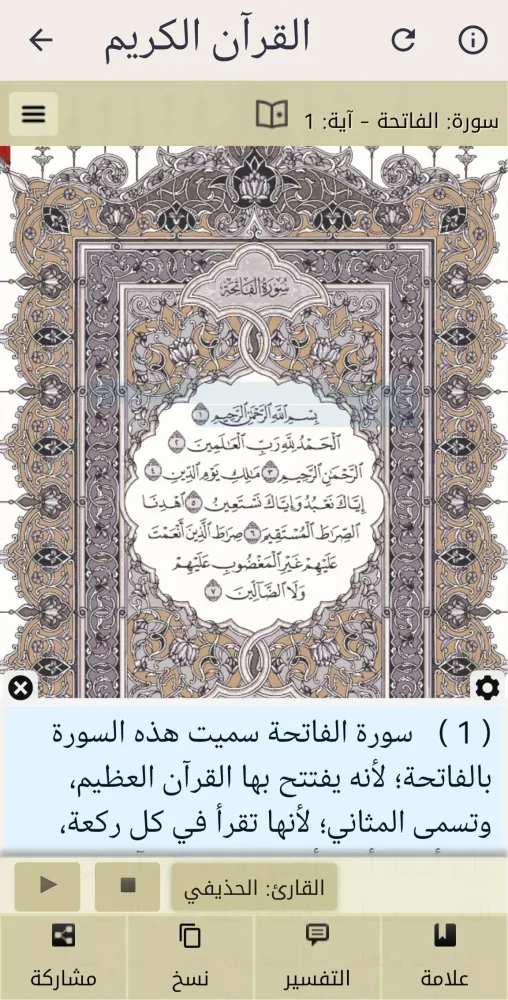 القرآن الكريم
سورة: الفاتحة - آية: 1
سُورَةُ الفَاتِحَةِ
بِسْمِ اللَّهِ الرَّحْمَٰنِ الرَّحِيمِ ١
الْحَمْدُ لِلَّهِ رَبِّ الْعَالَمِينَ ٢
الرَّحْمَٰنِ الرَّحِيمِ ٣ مَالِكِ يَوْمِ الدِّينِ ٤
إِيَّاكَ نَعْبُدُ وَإِيَّاكَ نَسْتَعِينُ ٥ اهْدِنَا
الصِّرَاطَ الْمُسْتَقِيمَ ٦ صِرَاطَ الَّذِينَ أَنْعَمْتَ
عَلَيْهِمْ غَيْرِ الْمَغْضُوبِ عَلَيْهِمْ
وَلَا الضَّالِّينَ ٧
( 1 ) سورة الفاتحة سميت هذه السورة
بالفاتحة؛ لأنه يفتتح بها القرآن العظيم،
وتسمى المثاني؛ لأنها تقرأ في كل ركعة،
القارئ: الحذيفي
علامة
التفسير
نسخ
مشاركة